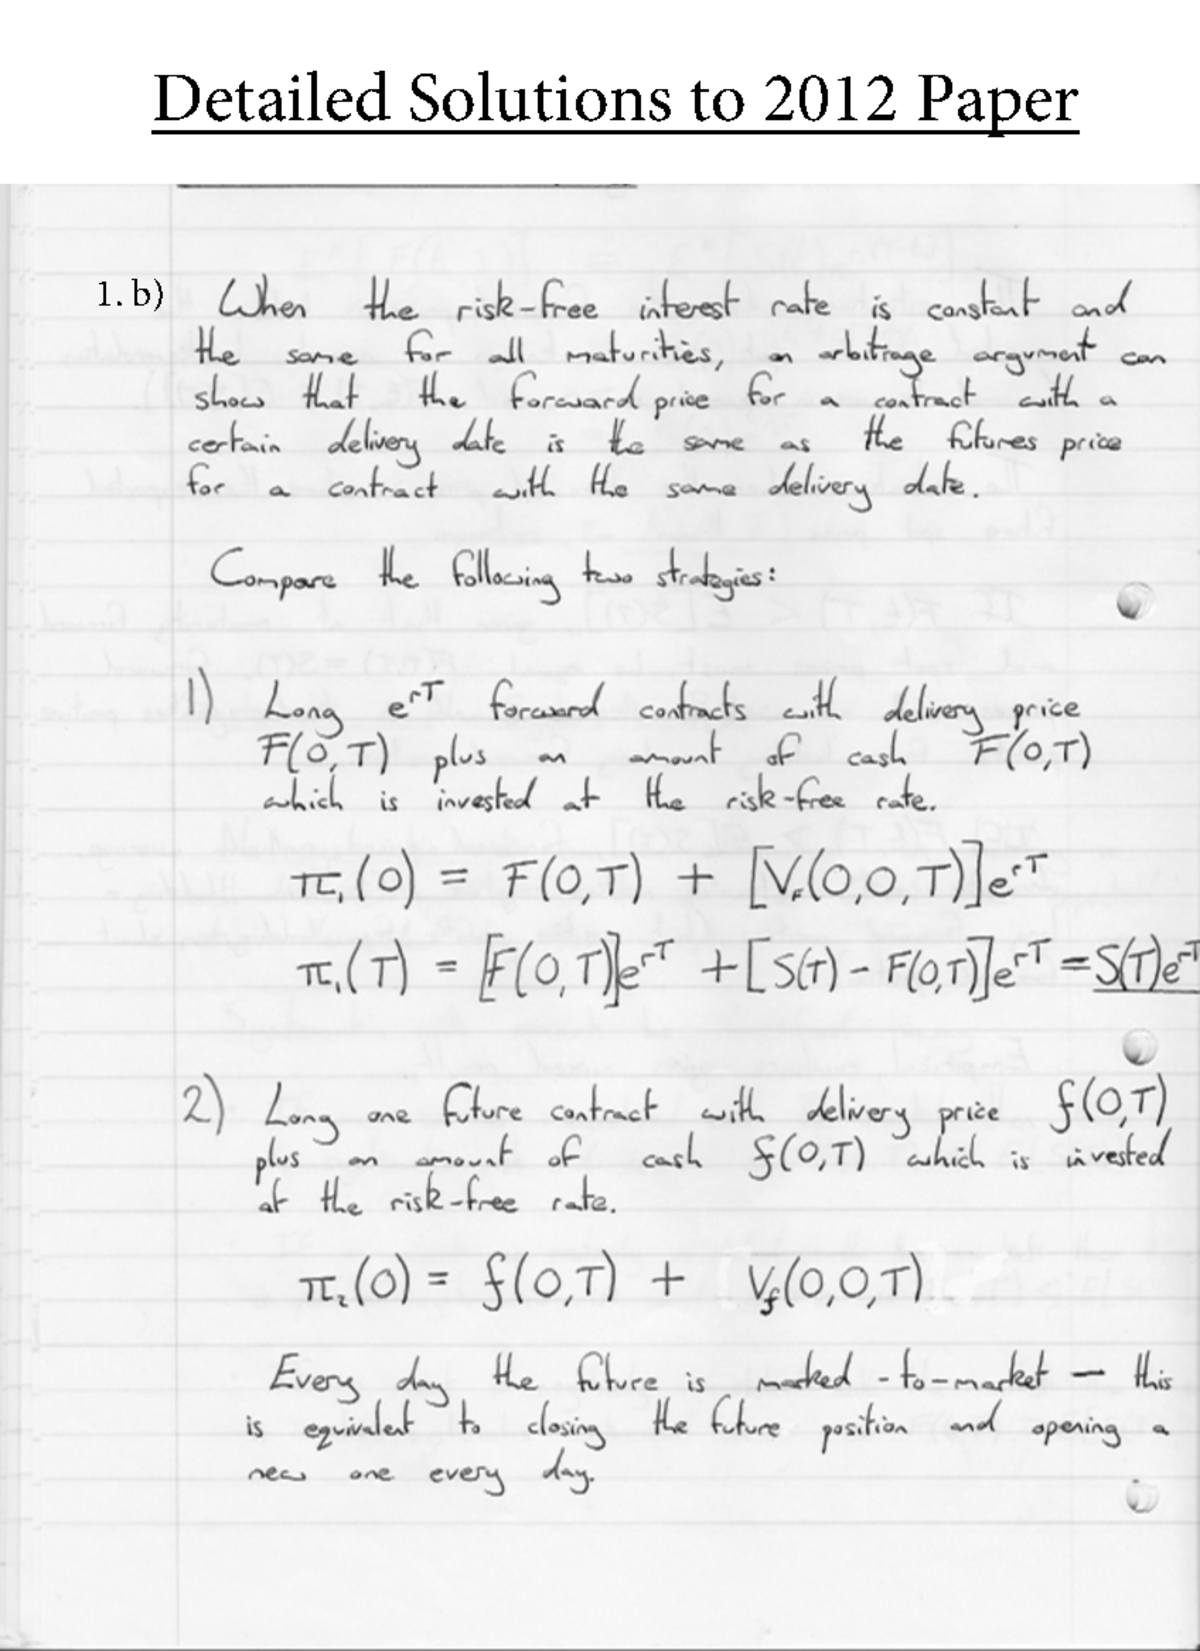 Detailed Solutions to 2012 Paper
1. b) When the risk-free interest rate is constant and
the same for all maturities, an arbitrage argument can
show that the forward price for a contract with a
certain delivery date is the same as the futures price
for a contract with the same delivery date.
Compare the following two strategies:
1) Long e^{rT} forward contracts with delivery price
F(0,T) plus an amount of cash F(0,T)
which is invested at the risk-free rate.
π₁(0) = F(0,T) + [V_F(0,0,T)]e^{rT}
π₁(T) = [F(0,T)]e^{rT} + [S(T) - F(0,T)]e^{rT} = S(T)e^{rT}
2) Long one future contract with delivery price f(0,T)
plus an amount of cash f(0,T) which is invested
at the risk-free rate.
π₂(0) = f(0,T) + V_f(0,0,T)
Every day the future is marked-to-market — this
is equivalent to closing the future position and opening a
new one every day.